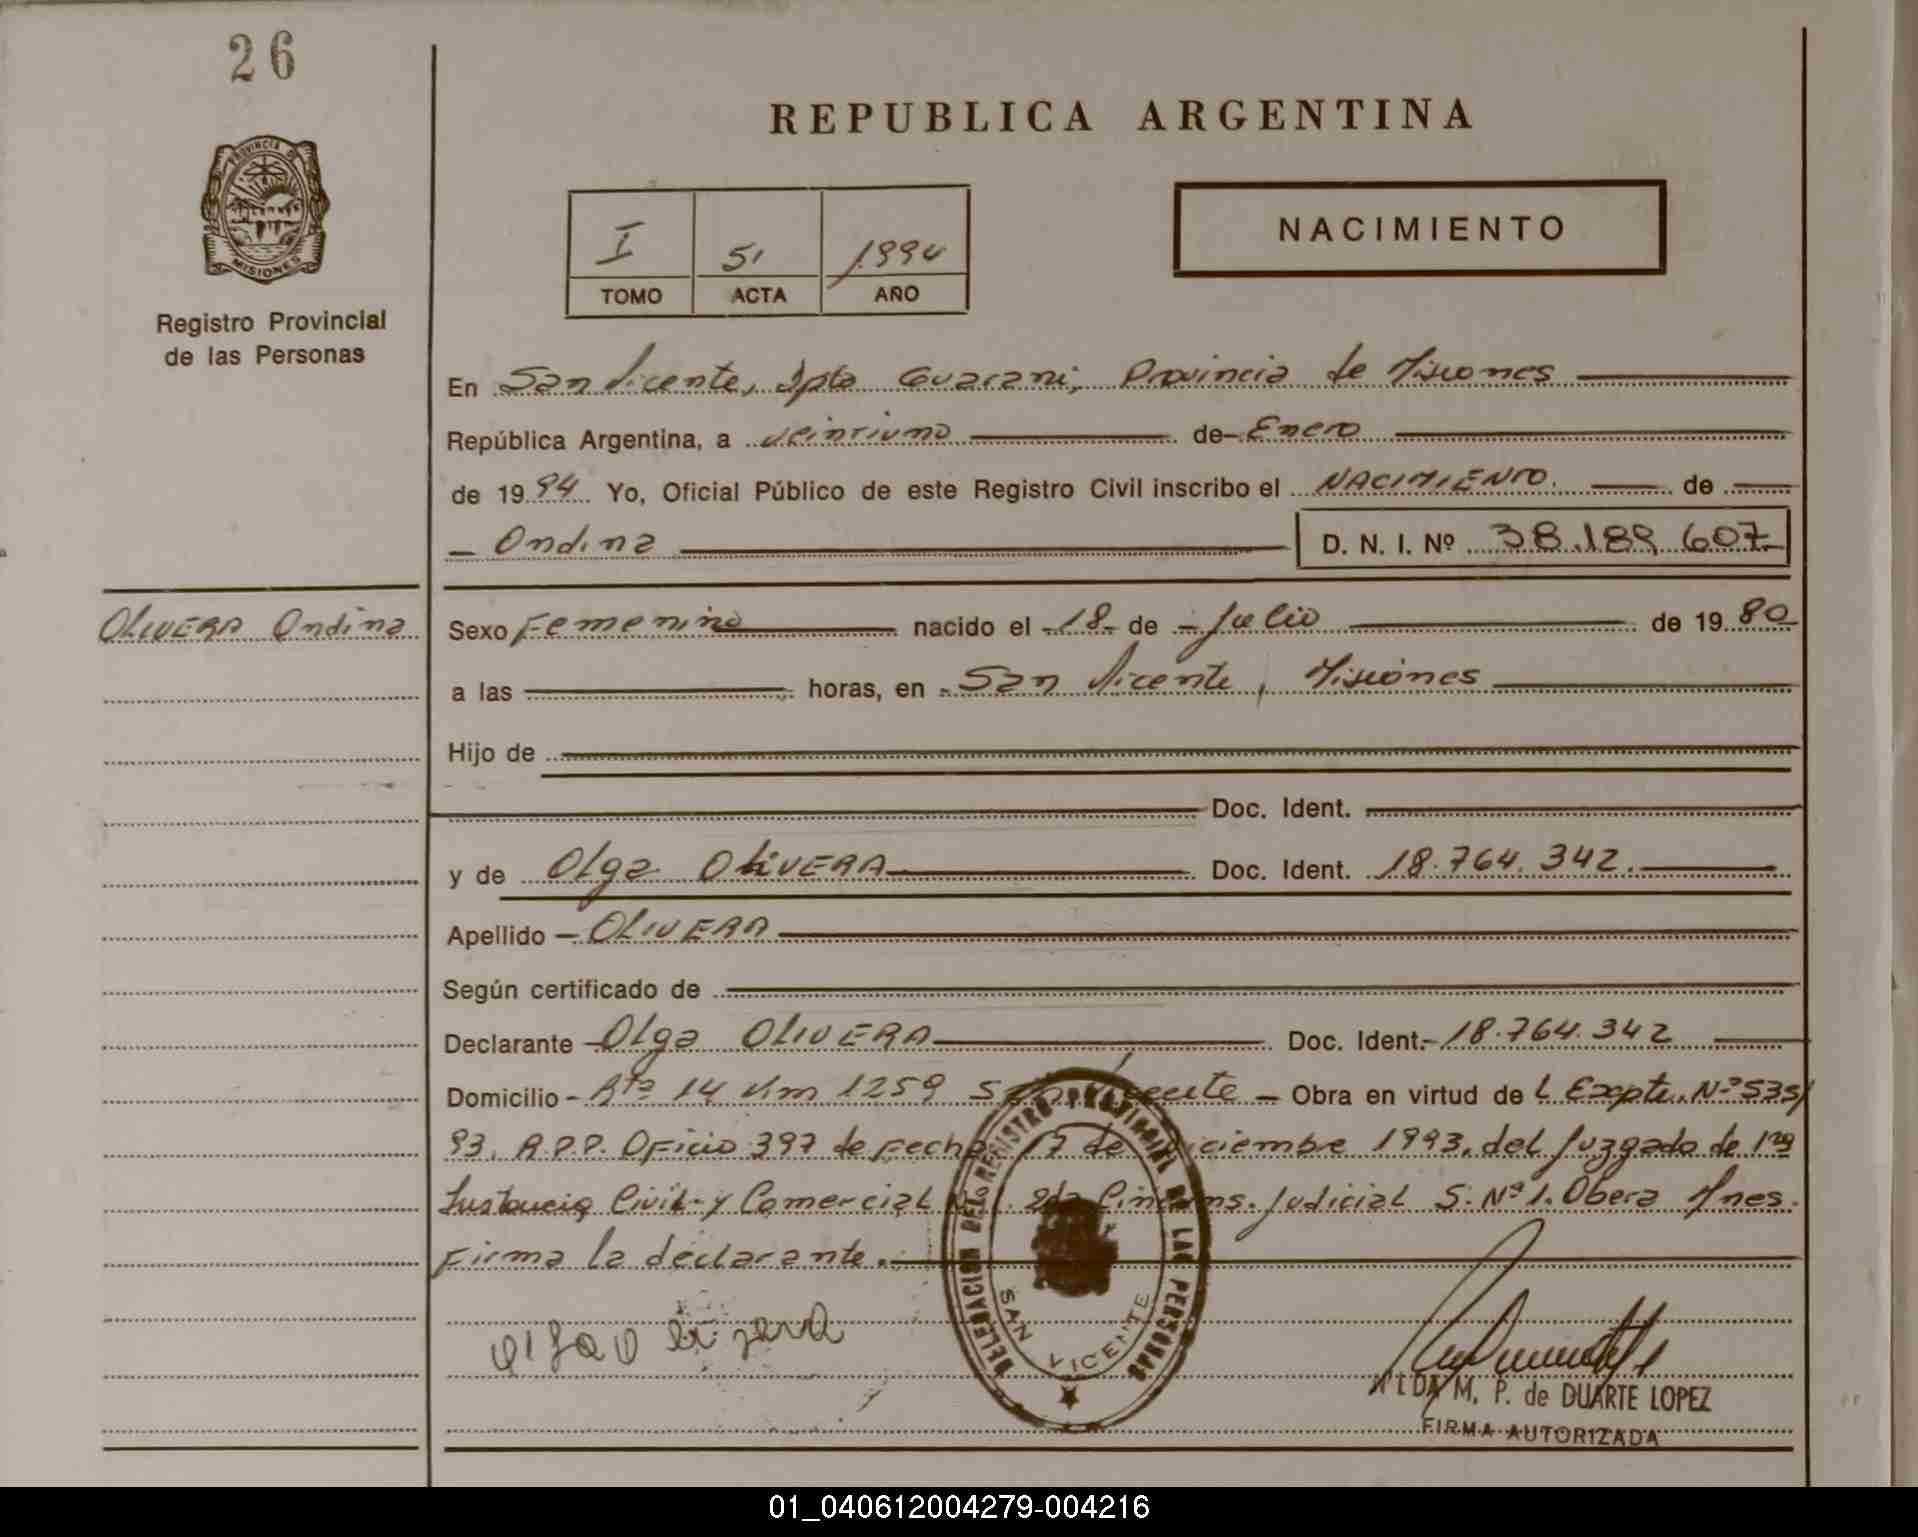 26
PROVINCIA DE
MISIONES
Registro Provincial
de las Personas
REPUBLICA ARGENTINA
I 51 1994
TOMO ACTA AÑO
NACIMIENTO
En San Vicente, Dpto Guarani, Provincia de Misiones
República Argentina, a veintiuno de Enero
de 1994 Yo, Oficial Público de este Registro Civil inscribo el NACIMIENTO. de
Ondina D. N. I. Nº 38.189.607
OLIVERA Ondina
Sexo Femenino nacido el 18 de Julio de 1980
a las horas, en San Vicente, Misiones
Hijo de
Doc. Ident.
y de Olga OLIVERA Doc. Ident. 18.764.342.
Apellido OLIVERA
Según certificado de
Declarante Olga OLIVERA Doc. Ident. 18.764.342
Domicilio Rta 14 Km 1259 San Vicente Obra en virtud del Expte. Nº 535/
93. R.P.P. Oficio 397 de Fecha 17 de Diciembre 1993, del Juzgado de 1ra
Instancia Civil y Comercial 2da Circuns. Judicial S. Nº 1. Obera Mnes.
Firma la declarante.
DELEGACION DEL REGISTRO PROVINCIAL DE LAS PERSONAS
SAN VICENTE
M. P. de DUARTE LOPEZ
FIRMA AUTORIZADA
01_040612004279-004216